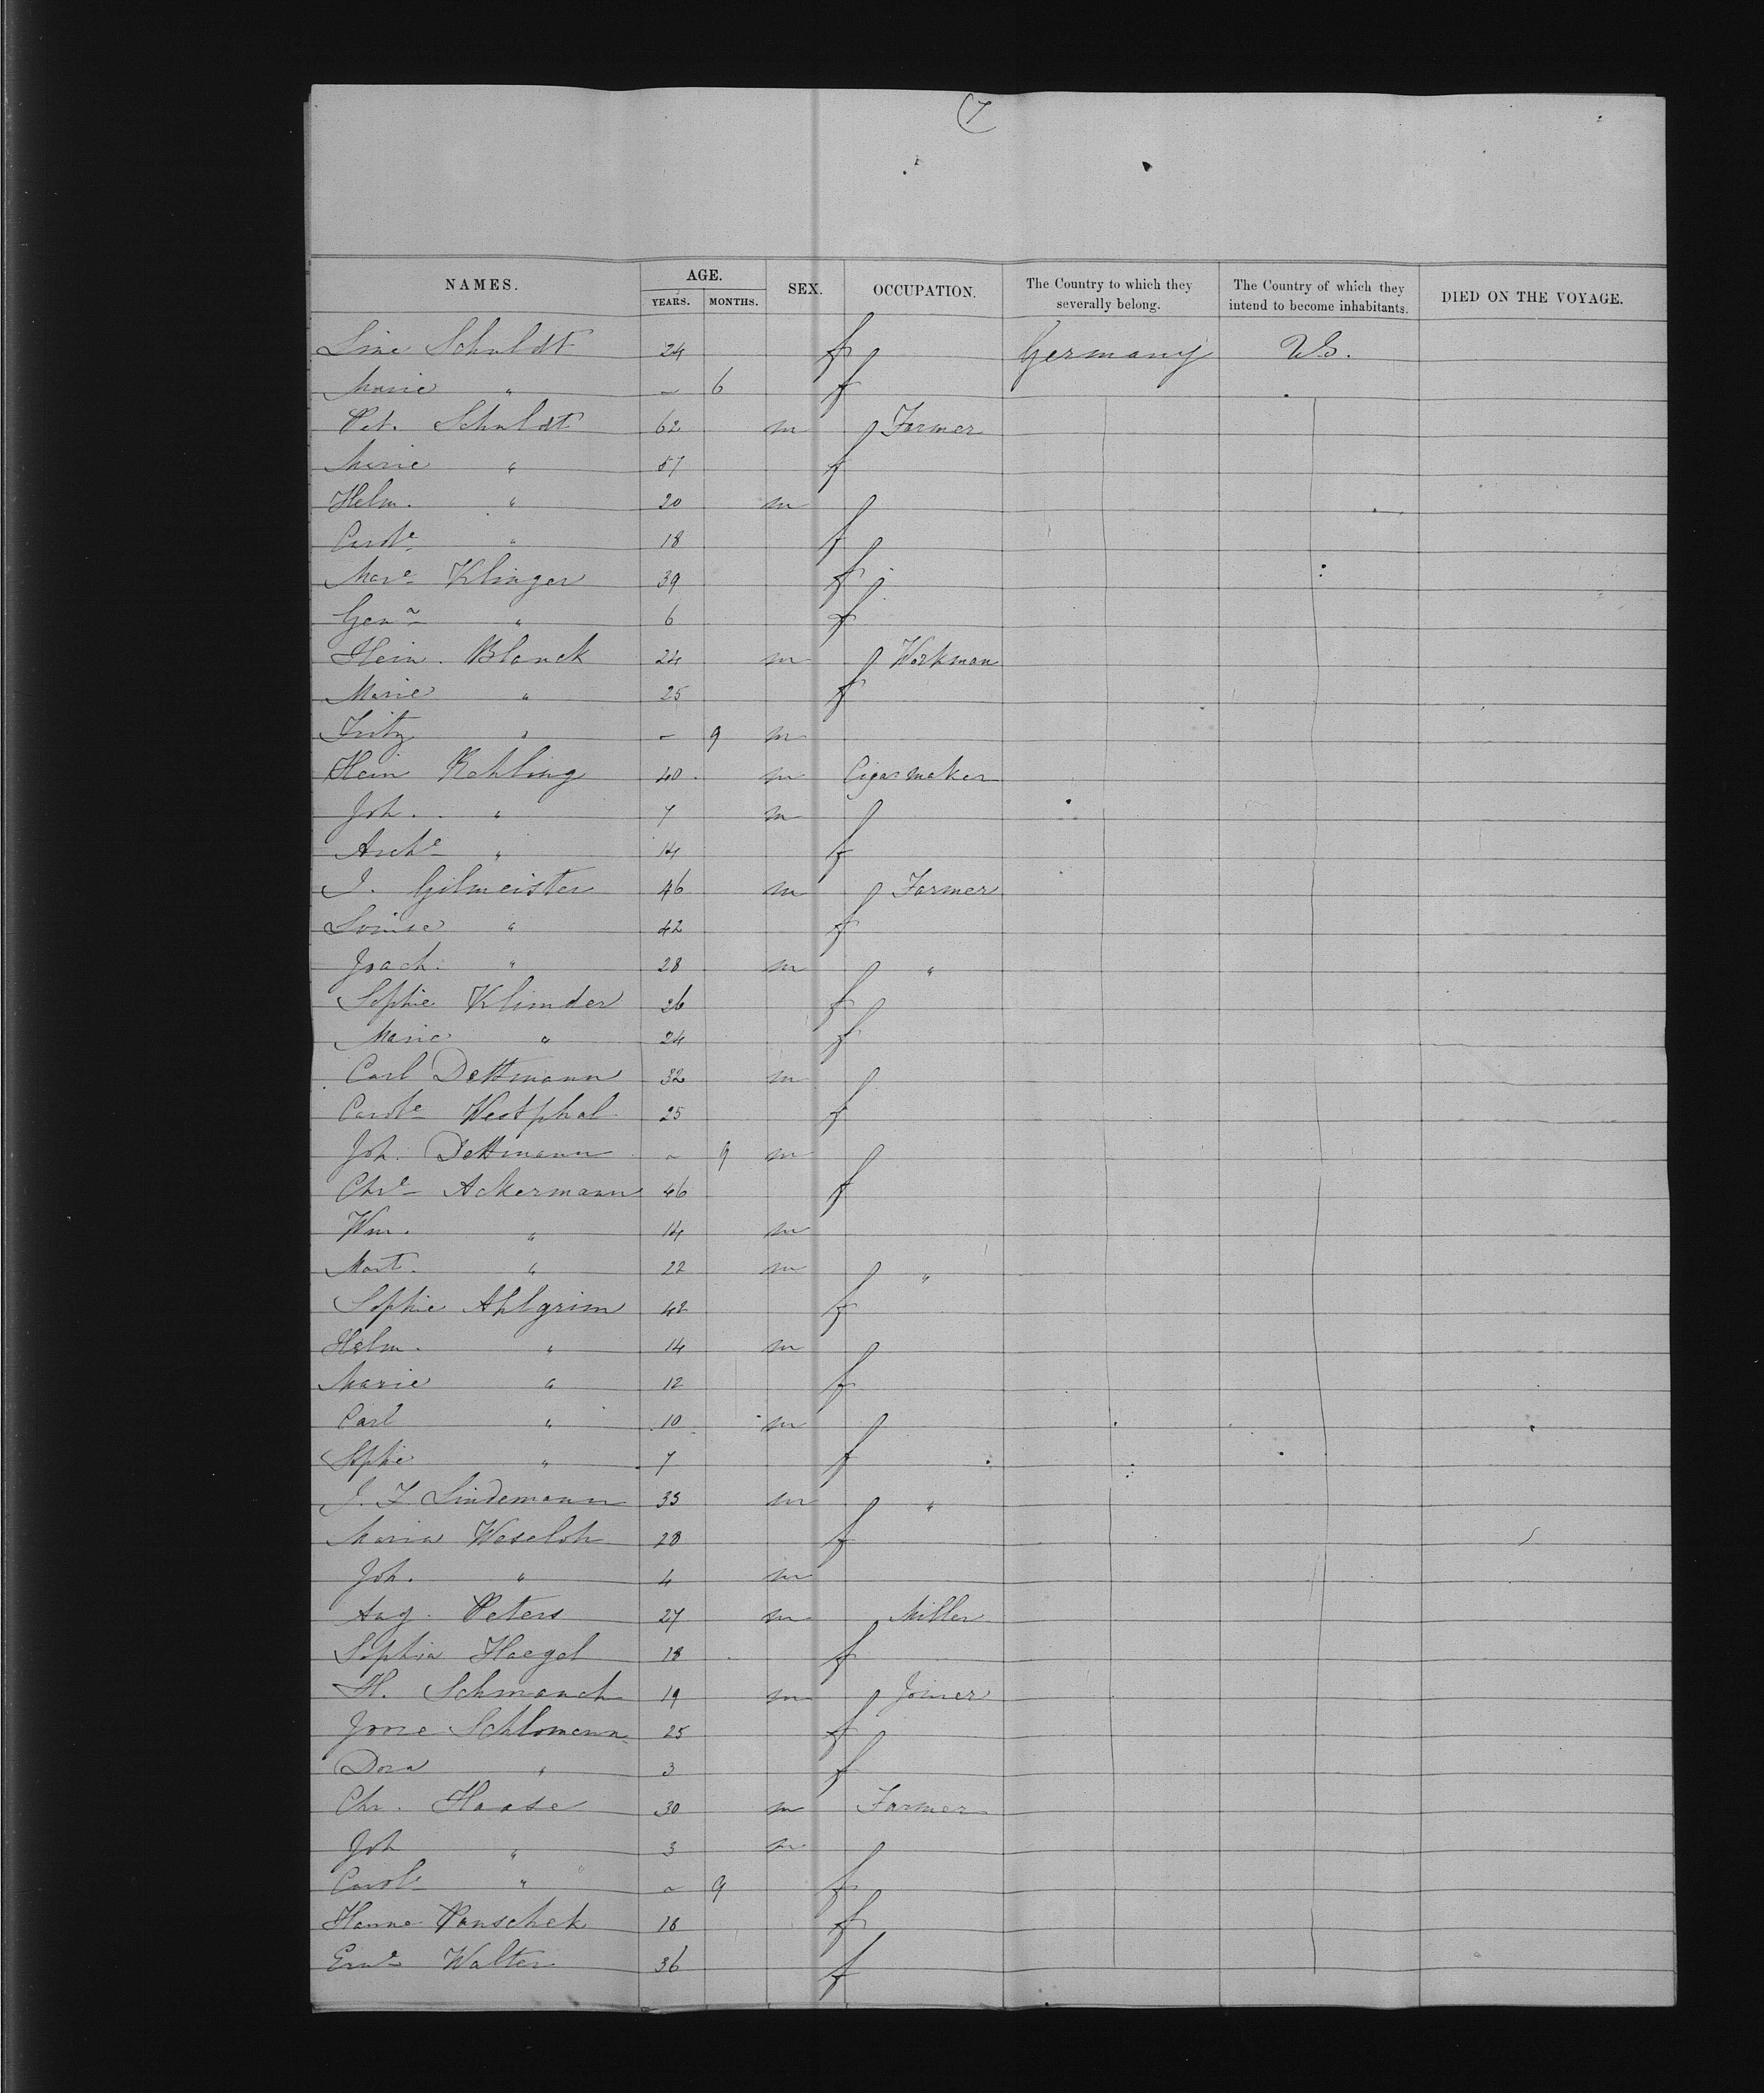 7
NAMES. AGE. YEARS. MONTHS. SEX. OCCUPATION. The Country to which they severally belong. The Country of which they intend to become inhabitants. DIED ON THE VOYAGE.
Line Schuldt 24 f Germany US.
Marie " - 6 f
Pet. Schuldt 62 m Farmer
Marie " 57 f
Helm. " 20 m
Carole " 18 f
Mare Klinger 39 f
" 6 f
Hein. Blanck 24 m Workman
Marie " 25 f
Fritz " - 9 m
Hein Rehling 40 m Cigarmaker
Joh. " 7 m
" 14 f
J. Gilmeister 46 m Farmer
Louise " 42 f
Joach. " 28 m "
Sophie Klimder 26 f
Marie " 24 f
Carl Dettmann 32 m
Carole Westphal 25 f
Joh. Dettmann - 9 m
Chre Ackermann 46 f
Wm. " 14 m
Mart. " 22 m "
Sophie Ahlgrim 42 f
Helm. " 14 m
Marie " 12 f
Carl " 10 m
Sophie " 7 f
J. F. Lindemann 35 m "
Maria Weseloh 28 f
Joh. " 4 m
Aug. Peters 27 m Miller
Sophia Haegel 18 f
H. Schmanch 19 m Joiner
Schlomann 25 f
Dora " 3 f
Chr. Haase 30 m Farmer
Joh " 3 m
Carole " - 9 f
Hanne Panschek 18 f
Erne Walter 36 f